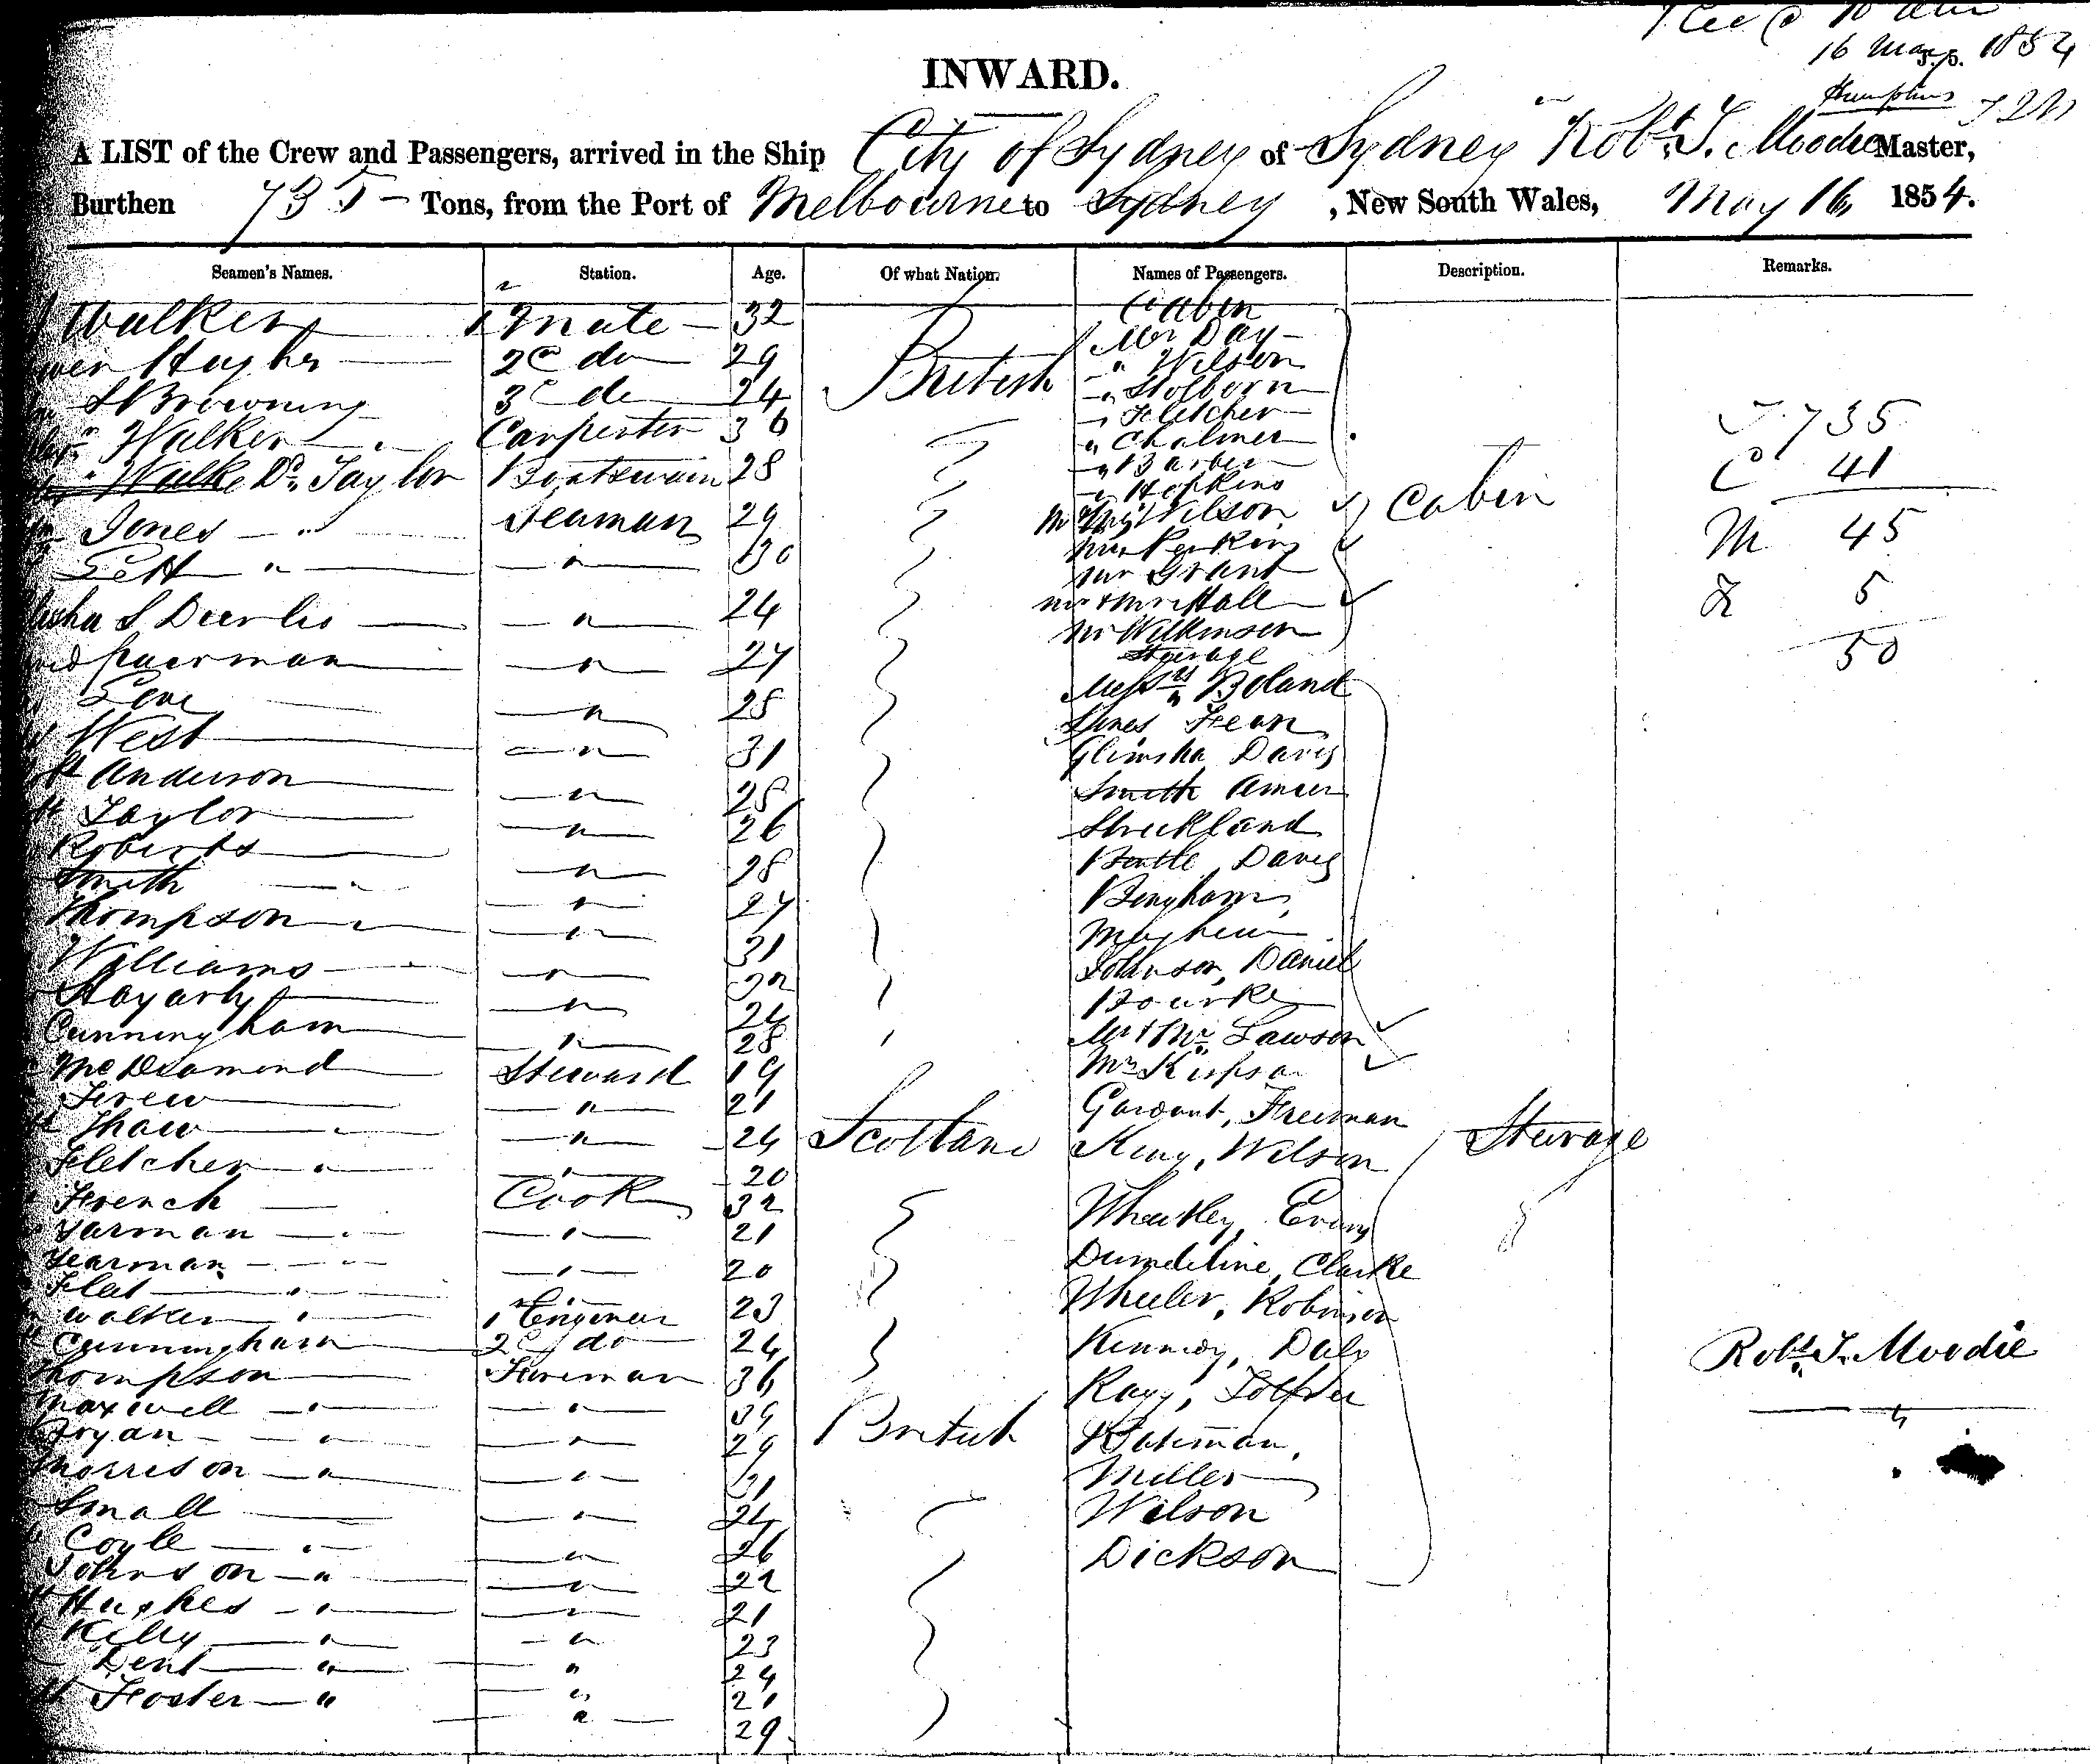 16 May 1854
INWARD.
A LIST of the Crew and Passengers, arrived in the Ship City of Sydney of Sydney Robt. T. Moodie Master,
Burthen 735 Tons, from the Port of Melbourne to Sydney, New South Wales, May 16, 1854.
Seamen's Names. Station. Age. Of what Nation. Names of Passengers. Description. Remarks.
Walker 1 Mate 32 Cabin
Hughes 2d do 29 British Mr Day
Browning 3d do 24 " Wilson
" Holborn
" Fletcher
Walker Carpenter 36 " Chalmer T. 735
" Barber
Do. Taylor Boatswain 28 " Hopkins C 41
Jones " Seaman 29 Wilson Cabin M 45
Lett " " 30 Mr Perkins
Mr Grant
S Deerlis " 24 Mr & Mrs Hall F 5
Mr Wilkinson
Pearman " 27 Steerage 50
Love " 28 Messrs Boland
West " 31 Jones Fean
Anderson " 28 Davis
Taylor " 26 Smith
Roberts " 28 Strickland
Smith " " 27 Davis
Thompson " " 31 Bingham
Williams " 32 Mayhew
Hogarty " 24 Johnson, Daniel
Cunningham " 28 Bourke
Mr & Mrs Lawson
McDiamond Steward 19 Mrs
Frew " 21 Freeman
Shaw " " 24 Scotland King, Wilson Steerage
Fletcher " " 20
French Cook 32 Wheatley, Evans
Jarman " " 21
Yearman " " 20 Clarke
Flet " Wheeler, Robinson
Walker " 1st Engineer 23
Cunningham 2d do 24 Kennedy, Daly Robt. T. Moodie
Thompson Fireman 36
Maxwell " " 39 Kay,
Bryan " " 29 British Bateman,
Morrison " " 31 Miller
Small " 24 Wilson
Coyle " " 26 Dickson
Johnson " " 22
Hughes " " 21
Kelly " " 23
Dent " " 24
Foster " " 21
" 29